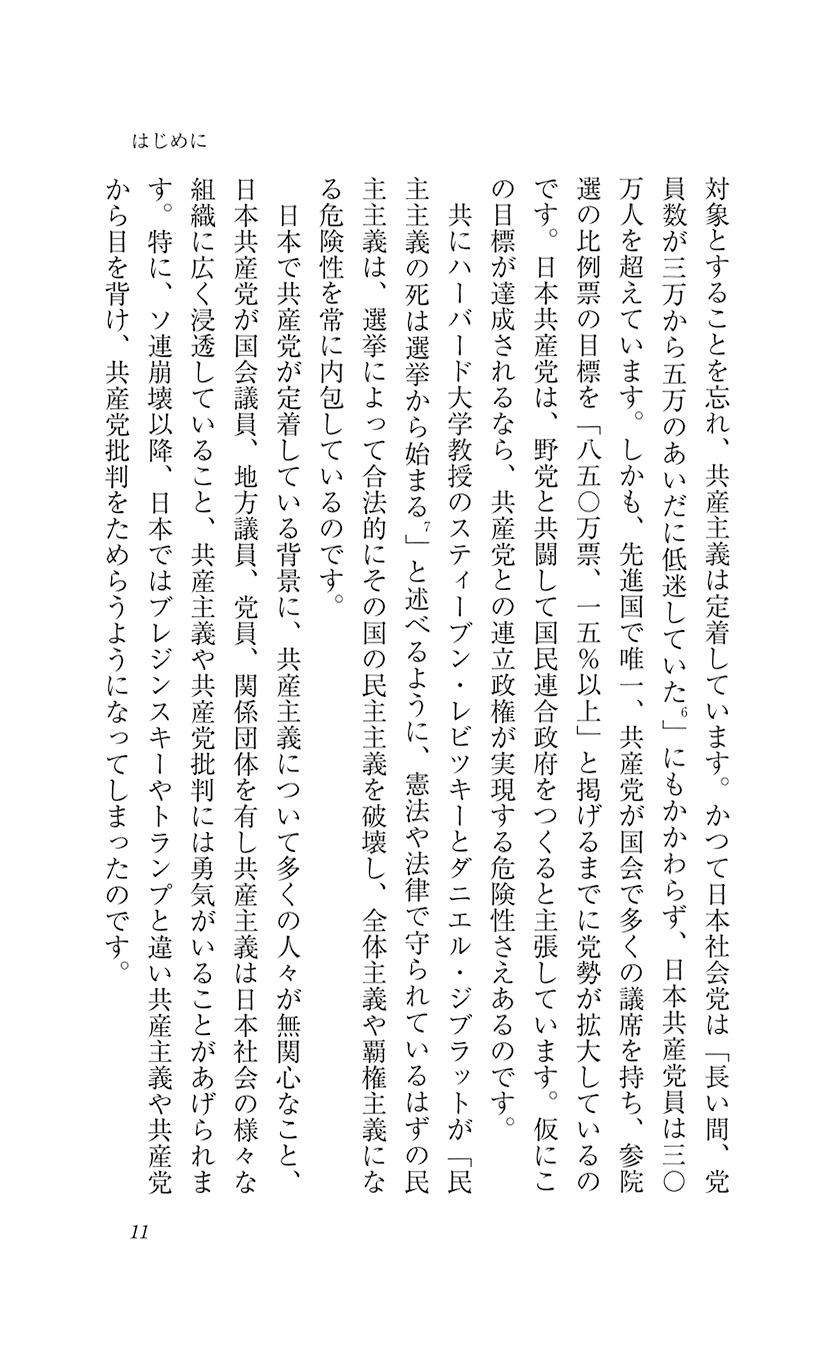 はじめに
対象とすることを忘れ、共産主義は定着しています。かつて日本社会党は「長い間、党
員数が三万から五万のあいだに低迷していた6」にもかかわらず、日本共産党員は三〇
万人を超えています。しかも、先進国で唯一、共産党が国会で多くの議席を持ち、参院
選の比例票の目標を「八五〇万票、一五%以上」と掲げるまでに党勢が拡大しているの
です。日本共産党は、野党と共闘して国民連合政府をつくると主張しています。仮にこ
の目標が達成されるなら、共産党との連立政権が実現する危険性さえあるのです。
共にハーバード大学教授のスティーブン・レビツキーとダニエル・ジブラットが「民
主主義の死は選挙から始まる7」と述べるように、憲法や法律で守られているはずの民
主主義は、選挙によって合法的にその国の民主主義を破壊し、全体主義や覇権主義にな
る危険性を常に内包しているのです。
日本で共産党が定着している背景に、共産主義について多くの人々が無関心なこと、
日本共産党が国会議員、地方議員、党員、関係団体を有し共産主義は日本社会の様々な
組織に広く浸透していること、共産主義や共産党批判には勇気がいることがあげられま
す。特に、ソ連崩壊以降、日本ではブレジンスキーやトランプと違い共産主義や共産党
から目を背け、共産党批判をためらうようになってしまったのです。
11